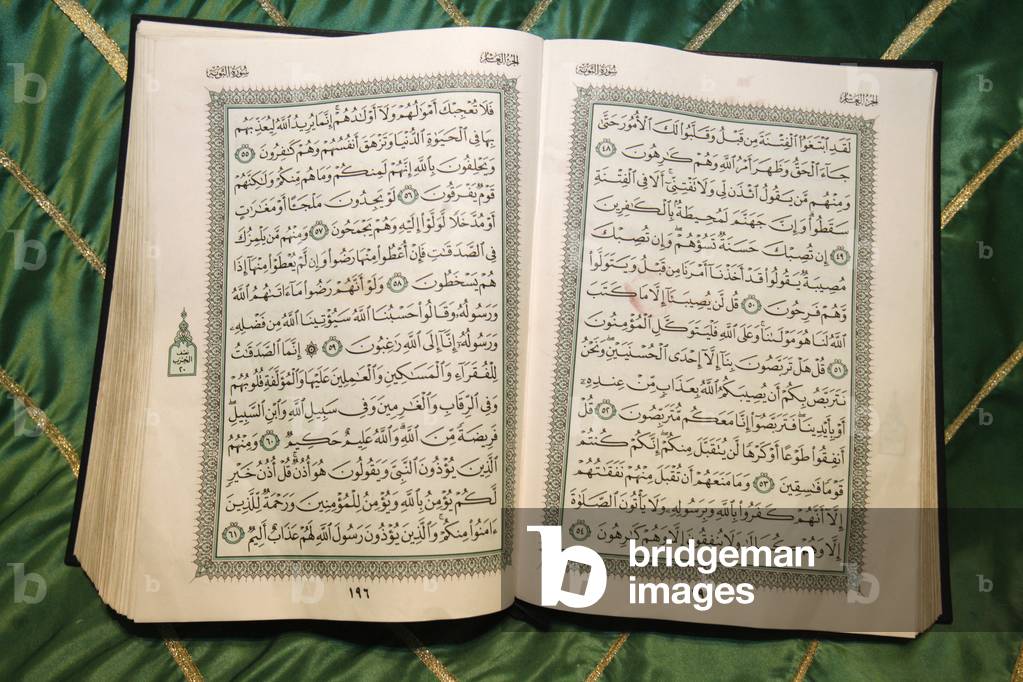 سُورَةُ التَّوْبَةِ
الجُزْءُ العَاشِرُ
لَقَدِ ٱبْتَغَوُا۟ ٱلْفِتْنَةَ مِن قَبْلُ وَقَلَّبُوا۟ لَكَ ٱلْأُمُورَ حَتَّىٰ
جَآءَ ٱلْحَقُّ وَظَهَرَ أَمْرُ ٱللَّهِ وَهُمْ كَٰرِهُونَ ٤٨
وَمِنْهُم مَّن يَقُولُ ٱئْذَن لِّى وَلَا تَفْتِنِّىٓ أَلَا فِى ٱلْفِتْنَةِ
سَقَطُوا۟ وَإِنَّ جَهَنَّمَ لَمُحِيطَةٌۢ بِٱلْكَٰفِرِينَ
٤٩ إِن تُصِبْكَ حَسَنَةٌ تَسُؤْهُمْ وَإِن تُصِبْكَ
مُصِيبَةٌ يَقُولُوا۟ قَدْ أَخَذْنَآ أَمْرَنَا مِن قَبْلُ وَيَتَوَلَّوا۟
وَّهُمْ فَرِحُونَ ٥٠ قُل لَّن يُصِيبَنَآ إِلَّا مَا كَتَبَ
ٱللَّهُ لَنَا هُوَ مَوْلَىٰنَا وَعَلَى ٱللَّهِ فَلْيَتَوَكَّلِ ٱلْمُؤْمِنُونَ
٥١ قُلْ هَلْ تَرَبَّصُونَ بِنَآ إِلَّآ إِحْدَى ٱلْحُسْنَيَيْنِ وَنَحْنُ
نَتَرَبَّصُ بِكُمْ أَن يُصِيبَكُمُ ٱللَّهُ بِعَذَابٍ مِّنْ عِندِهِۦٓ
أَوْ بِأَيْدِينَا فَتَرَبَّصُوٓا۟ إِنَّا مَعَكُم مُّتَرَبِّصُونَ ٥٢ قُلْ
أَنفِقُوا۟ طَوْعًا أَوْ كَرْهًا لَّن يُتَقَبَّلَ مِنكُمْ إِنَّكُمْ كُنتُمْ
قَوْمًا فَٰسِقِينَ ٥٣ وَمَا مَنَعَهُمْ أَن تُقْبَلَ مِنْهُمْ نَفَقَٰتُهُمْ
إِلَّآ أَنَّهُمْ كَفَرُوا۟ بِٱللَّهِ وَبِرَسُولِهِۦ وَلَا يَأْتُونَ ٱلصَّلَوٰةَ
إِلَّا وَهُمْ كُسَالَىٰ وَلَا يُنفِقُونَ إِلَّا وَهُمْ كَٰرِهُونَ ٥٤
سُورَةُ التَّوْبَةِ
الجُزْءُ العَاشِرُ
فَلَا تُعْجِبْكَ أَمْوَٰلُهُمْ وَلَآ أَوْلَٰدُهُمْ إِنَّمَا يُرِيدُ ٱللَّهُ لِيُعَذِّبَهُم
بِهَا فِى ٱلْحَيَوٰةِ ٱلدُّنْيَا وَتَزْهَقَ أَنفُسُهُمْ وَهُمْ كَٰفِرُونَ ٥٥
وَيَحْلِفُونَ بِٱللَّهِ إِنَّهُمْ لَمِنكُمْ وَمَا هُم مِّنكُمْ وَلَٰكِنَّهُمْ
قَوْمٌ يَفْرَقُونَ ٥٦ لَوْ يَجِدُونَ مَلْجَـًٔا أَوْ مَغَٰرَٰتٍ
أَوْ مُدَّخَلًا لَّوَلَّوْا۟ إِلَيْهِ وَهُمْ يَجْمَحُونَ ٥٧ وَمِنْهُم مَّن يَلْمِزُكَ
فِى ٱلصَّدَقَٰتِ فَإِنْ أُعْطُوا۟ مِنْهَا رَضُوا۟ وَإِن لَّمْ يُعْطَوْا۟ مِنْهَآ إِذَا
هُمْ يَسْخَطُونَ ٥٨ وَلَوْ أَنَّهُمْ رَضُوا۟ مَآ ءَاتَىٰهُمُ ٱللَّهُ
وَرَسُولُهُۥ وَقَالُوا۟ حَسْبُنَا ٱللَّهُ سَيُؤْتِينَا ٱللَّهُ مِن فَضْلِهِۦ
وَرَسُولُهُۥٓ إِنَّآ إِلَى ٱللَّهِ رَٰغِبُونَ ٥٩ ۞ إِنَّمَا ٱلصَّدَقَٰتُ
لِلْفُقَرَآءِ وَٱلْمَسَٰكِينِ وَٱلْعَٰمِلِينَ عَلَيْهَا وَٱلْمُؤَلَّفَةِ قُلُوبُهُمْ
وَفِى ٱلرِّقَابِ وَٱلْغَٰرِمِينَ وَفِى سَبِيلِ ٱللَّهِ وَٱبْنِ ٱلسَّبِيلِ
فَرِيضَةً مِّنَ ٱللَّهِ وَٱللَّهُ عَلِيمٌ حَكِيمٌ ٦٠ وَمِنْهُمُ
ٱلَّذِينَ يُؤْذُونَ ٱلنَّبِىَّ وَيَقُولُونَ هُوَ أُذُنٌ قُلْ أُذُنُ خَيْرٍ
لَّكُمْ يُؤْمِنُ بِٱللَّهِ وَيُؤْمِنُ لِلْمُؤْمِنِينَ وَرَحْمَةٌ لِّلَّذِينَ
ءَامَنُوا۟ مِنكُمْ وَٱلَّذِينَ يُؤْذُونَ رَسُولَ ٱللَّهِ لَهُمْ عَذَابٌ أَلِيمٌ ٦١
نصف
الحزب
٢٠
١٩٦
b bridgeman
images